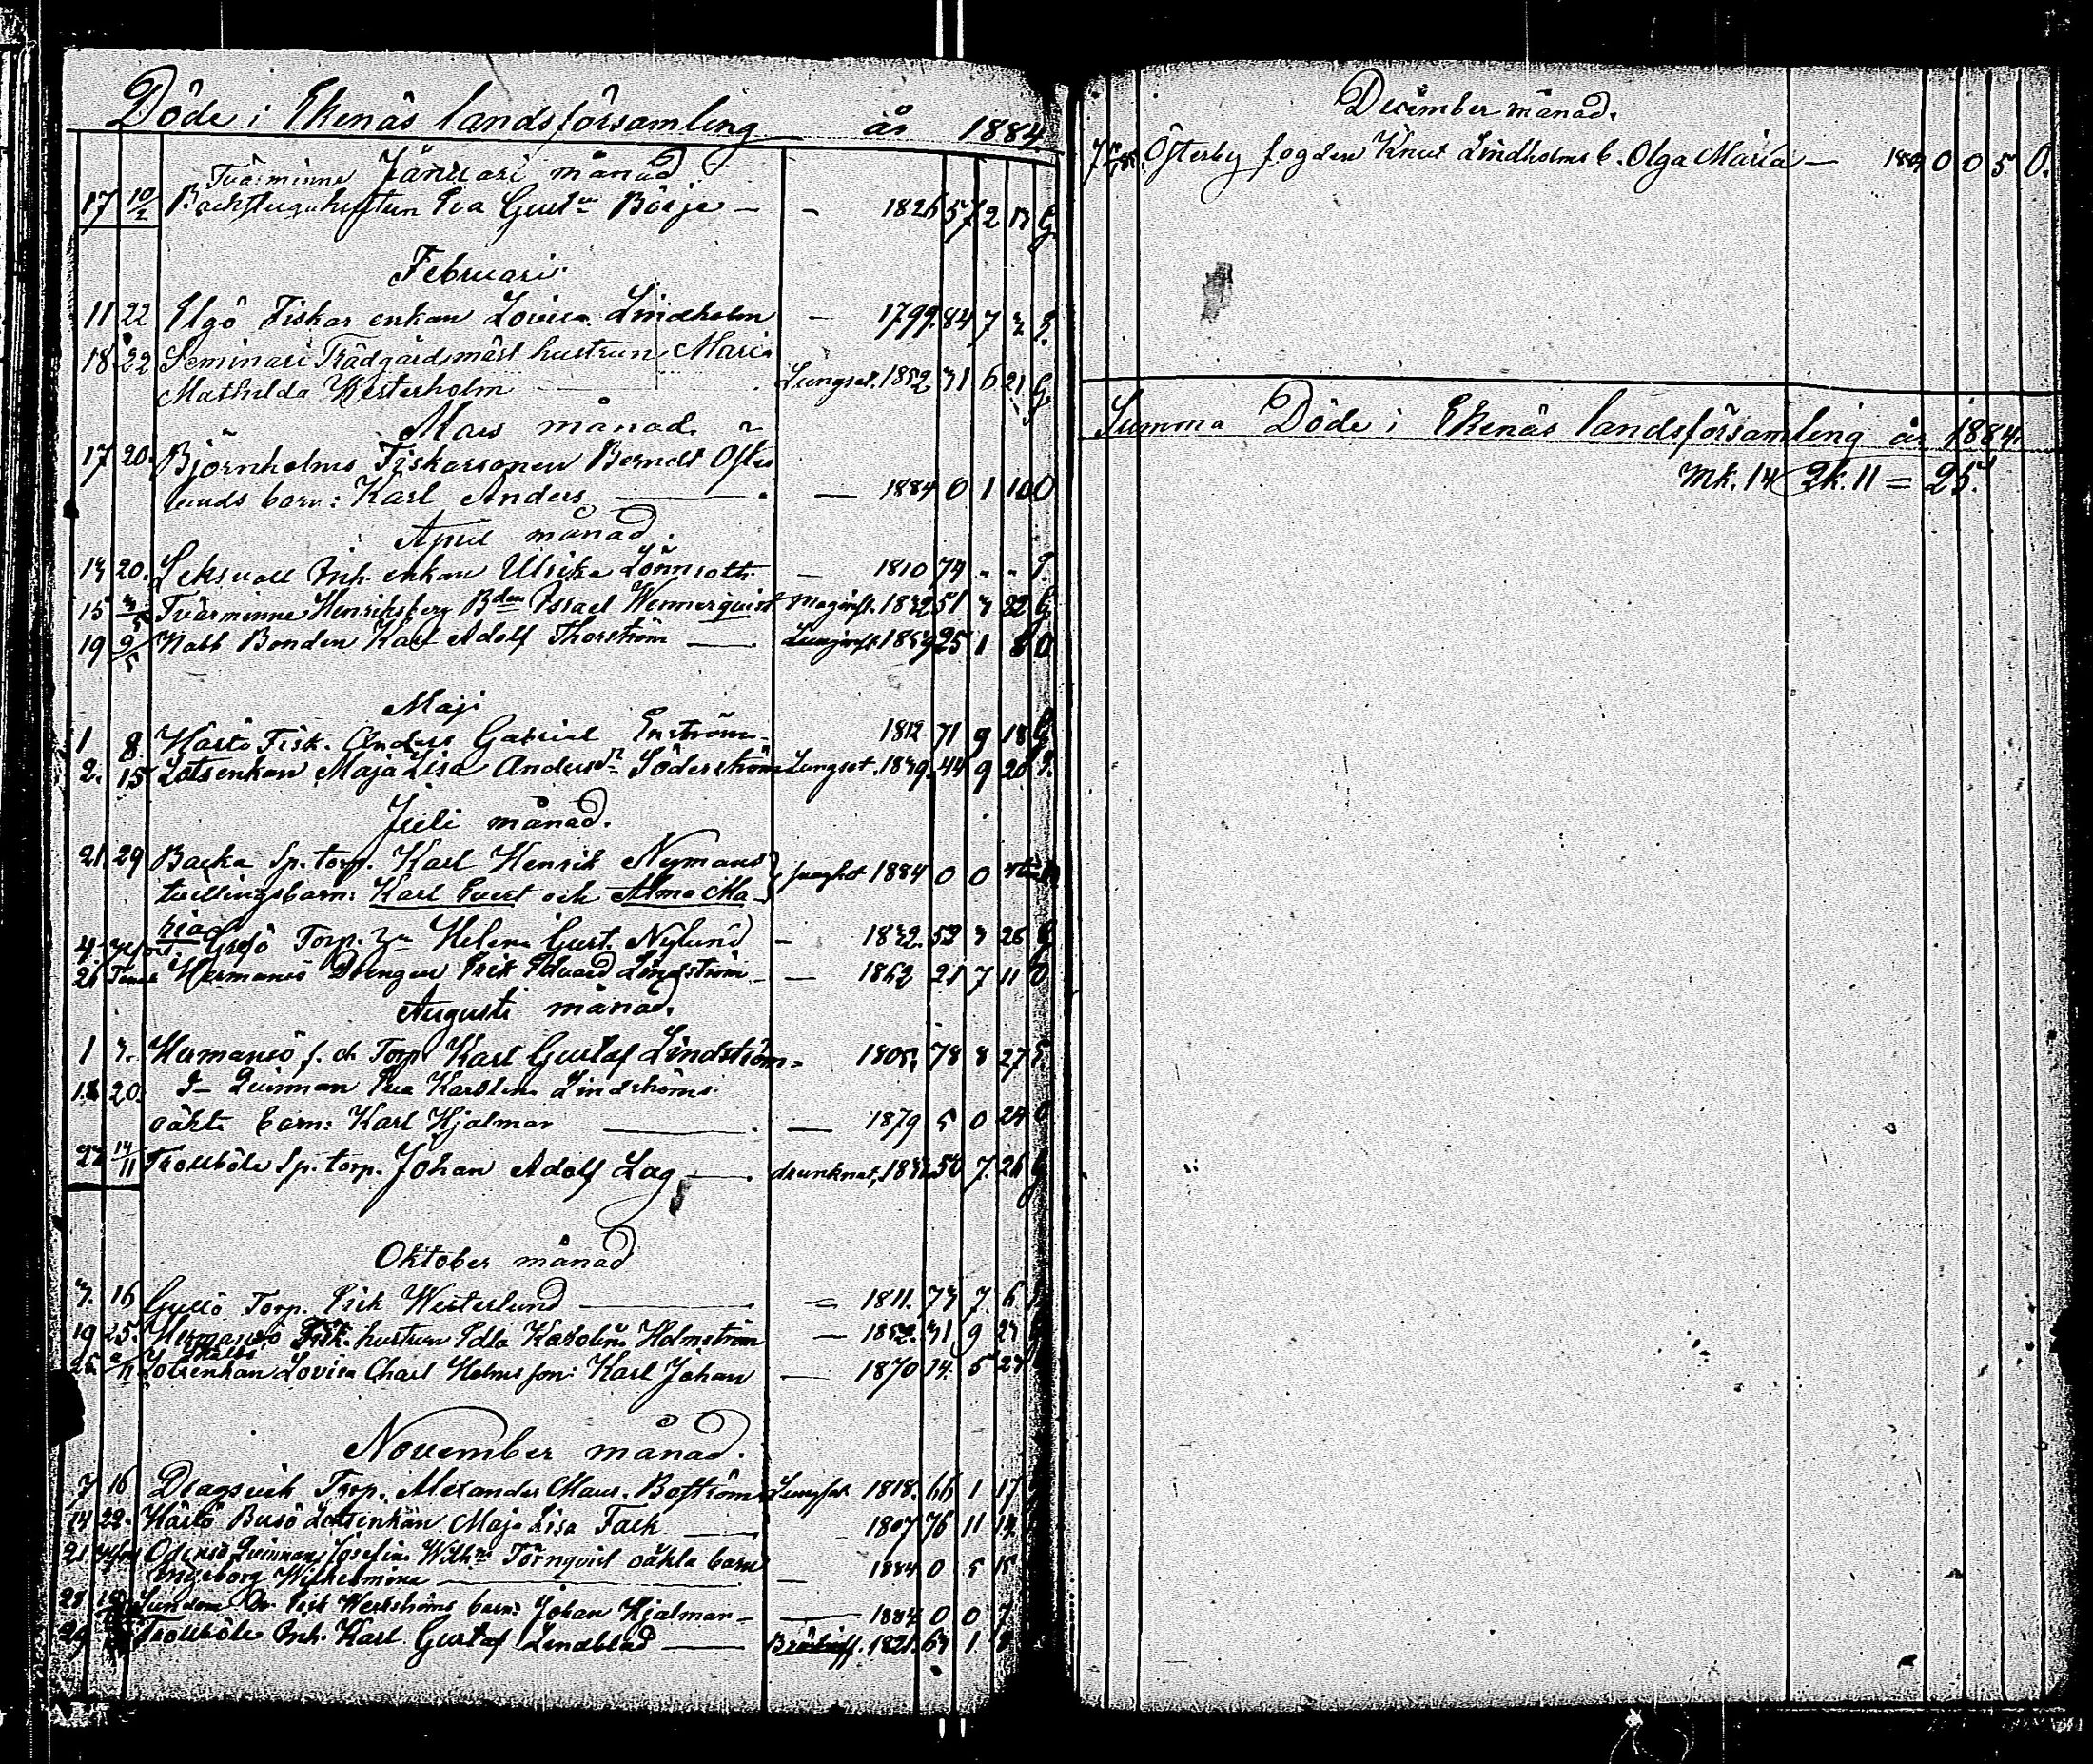 Döde i Ekenäs landsförsamling år 1884.
Januari månad
Tvärminne
17 10/2 Backstuguhustrun Eva Gust:a Börje — - 1826 57 2 G
Februari
11 22 Elgö Fiskar enkan Lovisa Lindholm - 1799. 84 7
18 22 Seminari Trädgårdsmäst hustrun Maria
Mathilda Westerholm Lungsot. 1852 31 6 21 G
Mars månad
17 20. Björnholms Fiskarsonen Berndt Öster
lunds barn: Karl Anders — 1884 0 1 10 O
April månad.
13 20. Leksvall Inh. enkan Ulrika Lönnroth - 1810 74 - -
15 3/5 Tvärminne Henriksberg B:den Israel Wennerqvist 1832 51 3 22 G
19 2/5 Nabb Bonden Karl Adolf Thorström — 1859 25 1 8 O
Maji
1 8 Hästö Fisk. Anders Gabriel Enström - 1812 71 9 18 G
2. 15 Lotsenkan Maja Lisa Söderström Lungsot. 1839. 44 9 20
Juli månad.
21 29 Backa Sp. torp. Karl Henrik Nymans
tvillingsbarn: Karl Evert och Alma Ma- 1884 0 0
ria
4 Torp. Helena Gust. Nylund - 1832. 52 3 26 G
26 Hermansö Drengen Erik Edvard Lindström - — 1862 21 7 11 O
Augusti månad.
1 3. Hermansö f. d. Torp. Karl Gustaf Lindström - 1805. 78 8 27
18 20. d- Qvinnan Eva Karolina Lindströms
oäkta barn: Karl Hjalmar — 1879 5 0 24 O
14/11 Trollböle Sp. torp. Johan Adolf Lag — drunknat, 50 7. 26 G
Oktober månad
3. 16 Gullö Torp. Erik Westerlund — 1811. 73 7. 6
19 25. Hermansö Fisk. hustrun Edla Karolina Holmström — 1852. 31 9 23
25 Lotsenkan Lovisa Charl Holms son: Karl Johan — 1870 14. 5 24
November månad.
7 16 Dragsvik Torp. Alexander Maur. Boström Lungsot 1818. 66 1 17
14 22. Hästö Busö Lotsenkan Maja Lisa Fack — 1807 76 11 14
21 Odensö Qvinnans Josefina Wilh:na Törnqvist oäkta barn
Ingeborg Wilhelmina — 1884 0 5 15
28 Sundom Dr. Erik Westströms barn: Johan Hjalmar — 1884 0 0 7
29 Trollböle Inh. Karl Gustaf Lindblad — 1821. 63 1
December månad.
7 Österby fogden Knut Lindholms b. Olga Maria — 1884 0 0 5 O.
Summa Döde i Ekenäs landsförsamling år 1884.
Mk. 14 Qk. 11 = 25.